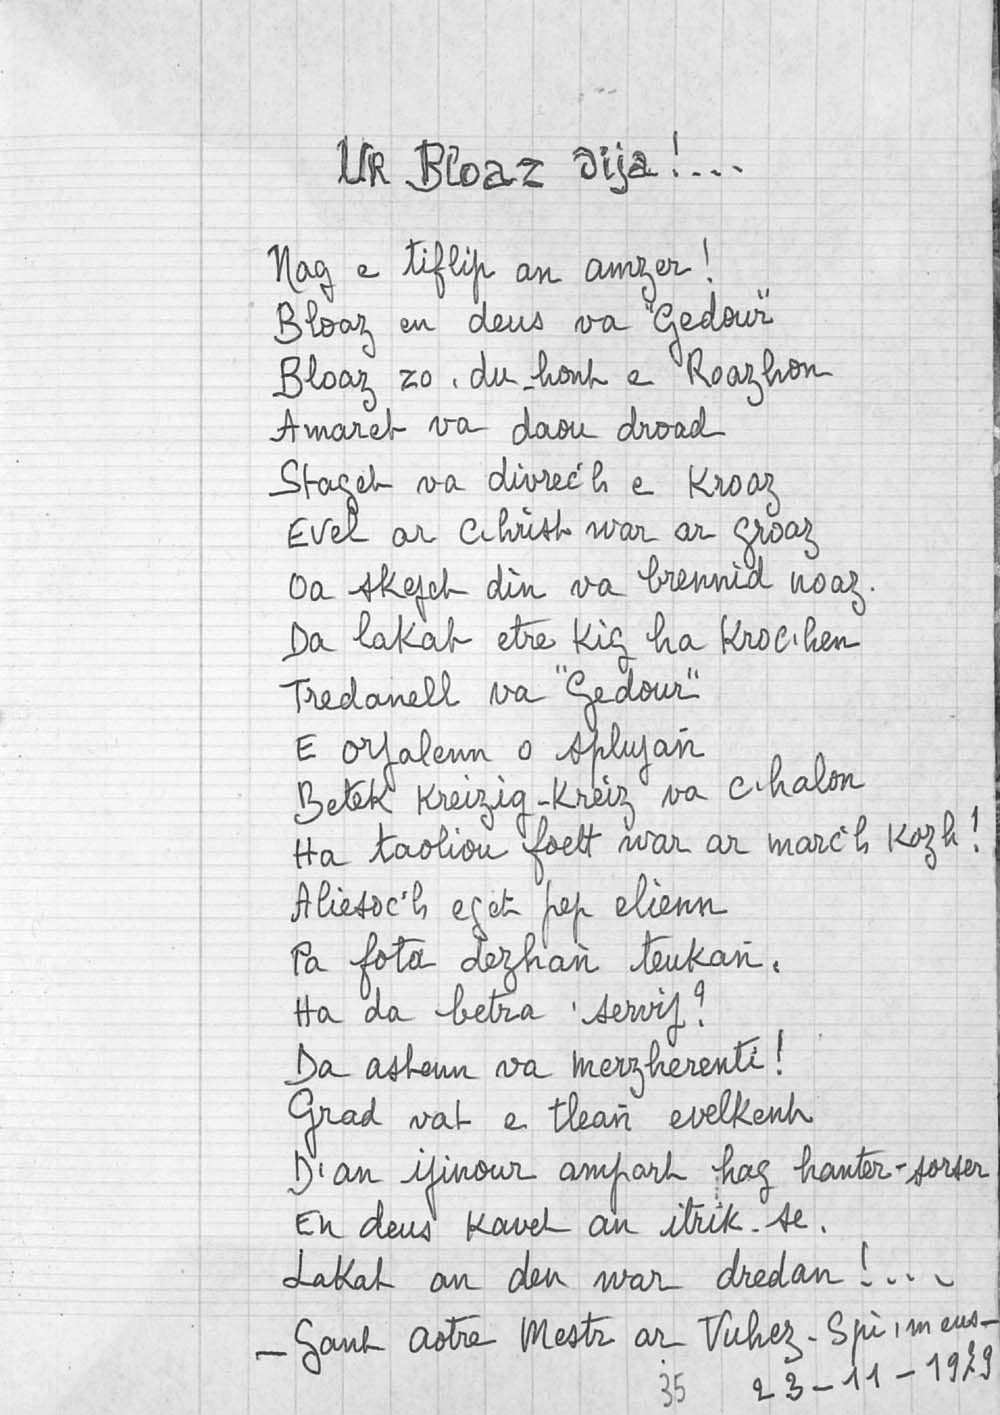 UR Bloaz dija !...
Nag e tiflip an amzer !
Bloaz en deus va "Gedour"
Bloaz zo, du-hont e Roazhon
Amaret va daou droad
Staget va divrec'h e Kroaz
Evel ar C'hrist war ar groaz
Oa skejet din va brennid noaz.
Da lakat etre Kig ha Kroc'hen
Tredanell va "Gedour"
E orjalenn o splujañ
Betek Kreizig-Kreiz va c'halon
Ha taoliou foett war ar marc'h Kozh !
Aliesoc'h eget pep elienn
Pa fota dezhañ teukañ.
Ha da betra 'servij ?
Da astenn va merzherenti !
Grad vat e tleañ evelkent
D'an ijinour ampart hag hanter-sorser
En deus Kavet an itrik-se.
Lakat an den war dredan !...
_ Gant Aotre Mestr ar Vuhez - Spi 'm eus _
35 23-11-1979